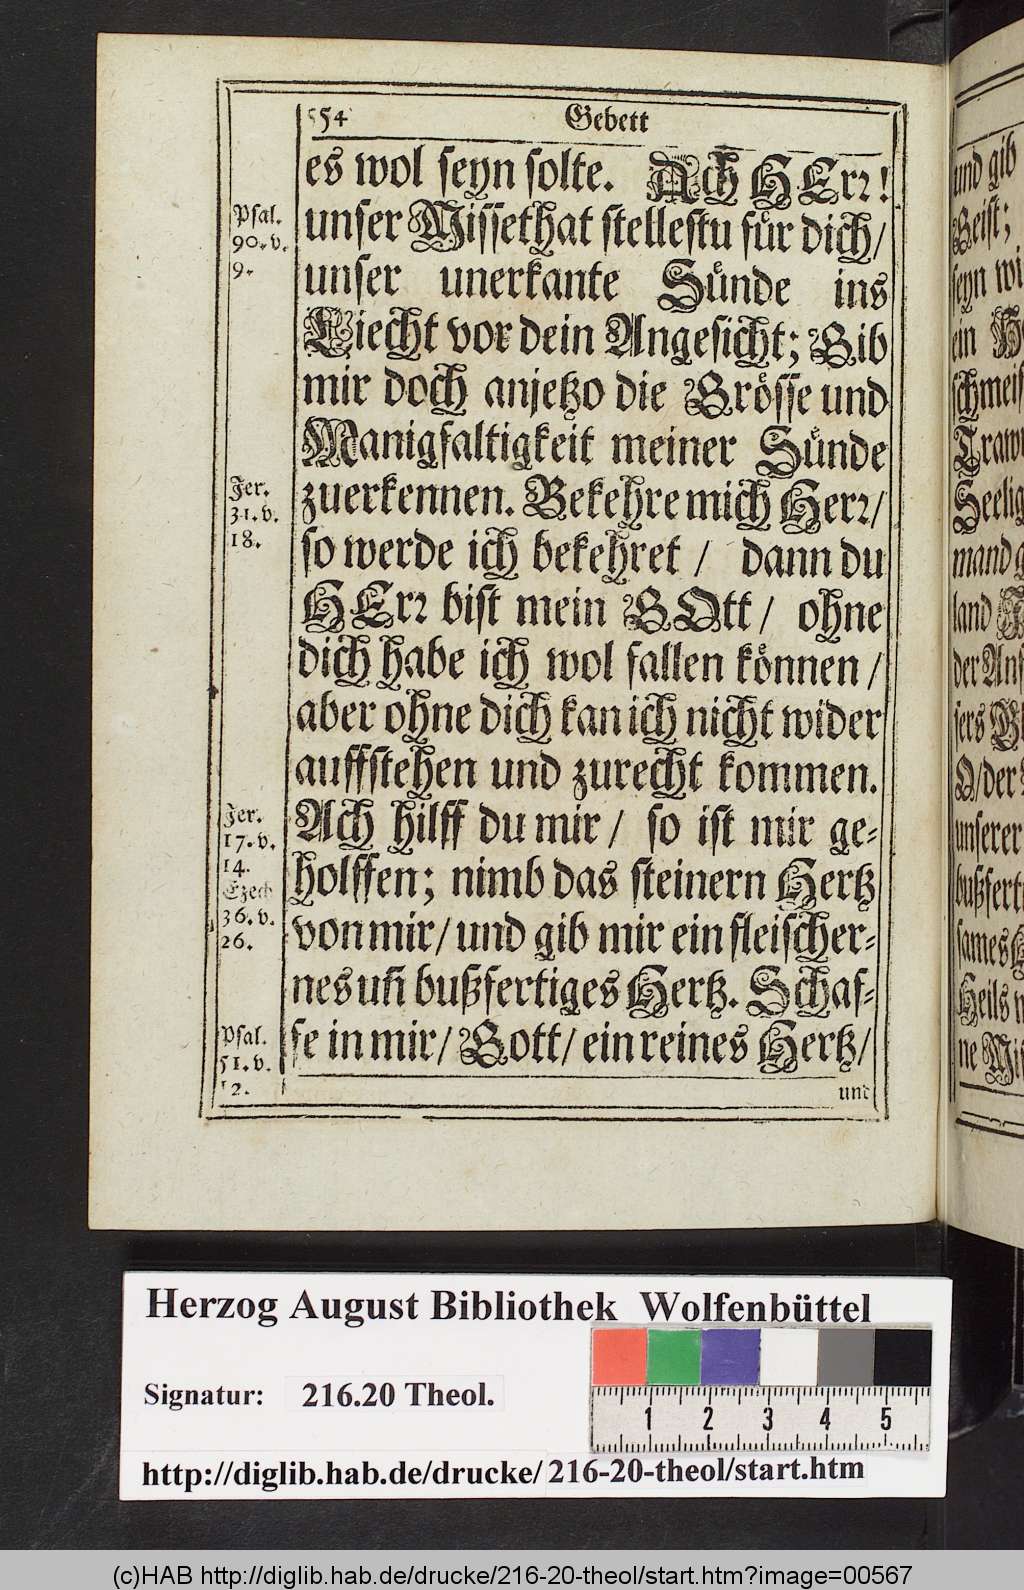 554 Gebett
es wol seyn solte. Ach HErr!
unser Missethat stellestu für dich/
unser unerkante Sünde ins
Liecht vor dein Angesicht; Gib
mir doch anjetzo die Grösse und
Manigfaltigkeit meiner Sünde
zuerkennen. Bekehre mich Herr/
so werde ich bekehret / dann du
HErr bist mein GOtt/ ohne
dich habe ich wol fallen können /
aber ohne dich kan ich nicht wider
auffstehen und zurecht kommen.
Ach hilff du mir / so ist mir ge-
holffen; nimb das steinern Hertz
von mir/ und gib mir ein fleischer-
nes uñ bußfertiges Hertz. Schaf-
fe in mir/ Gott/ ein reines Hertz/
und
Psal.
90. v.
9.
Jer.
31. v.
18.
Jer.
17. v.
14.
Ezech
36. v.
26.
Psal.
51. v.
12.
und gib
Geist;
seyn wi
ein H
schmeis
Traw
Seelig
mand g
land
der Ans
sers
O/der
unserer
bußfert
sames
Heils
ne Mis
Herzog August Bibliothek Wolfenbüttel
Signatur: 216.20 Theol.
1 2 3 4 5
http://diglib.hab.de/drucke/216-20-theol/start.htm
(c)HAB http://diglib.hab.de/drucke/216-20-theol/start.htm?image=00567